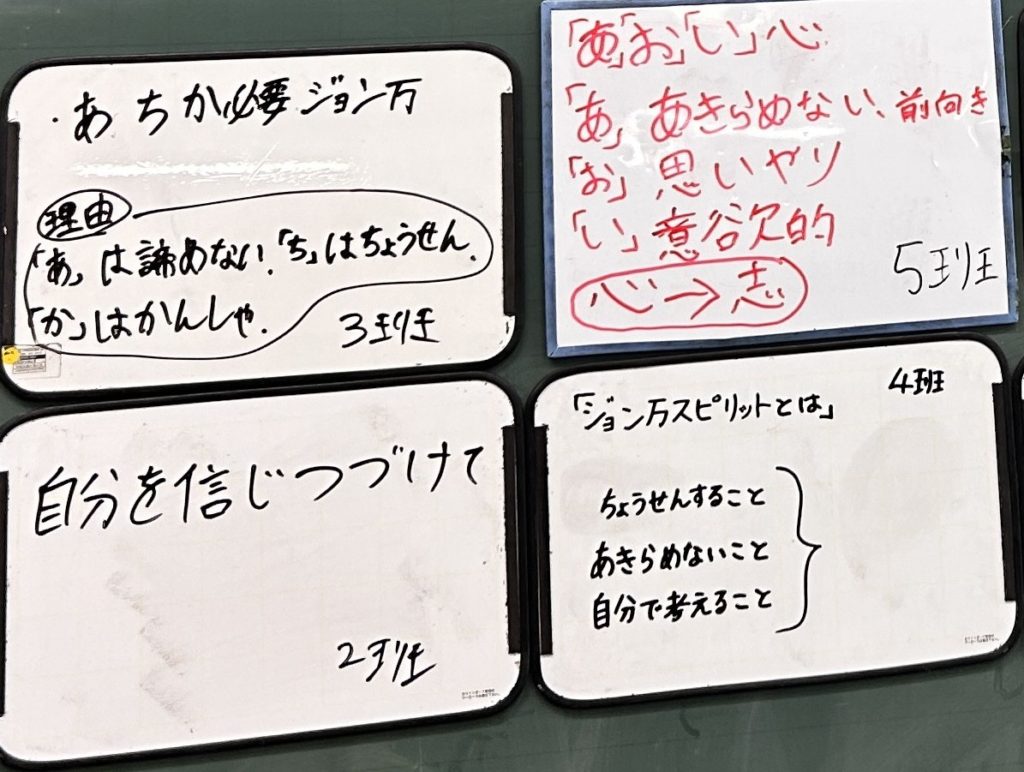 ・あちか必要ジョン万
理由
「あ」は諦めない.「ち」はちょうせん.
「か」はかんしゃ.
3班
「あ」「お」「い」心
「あ」あきらめない、前向き
「お」思いやり
「い」意欲的
心→志
5班
自分を信じつづけて
2班
4班
「ジョン万スピリットとは」
ちょうせんすること
あきらめないこと
自分で考えること